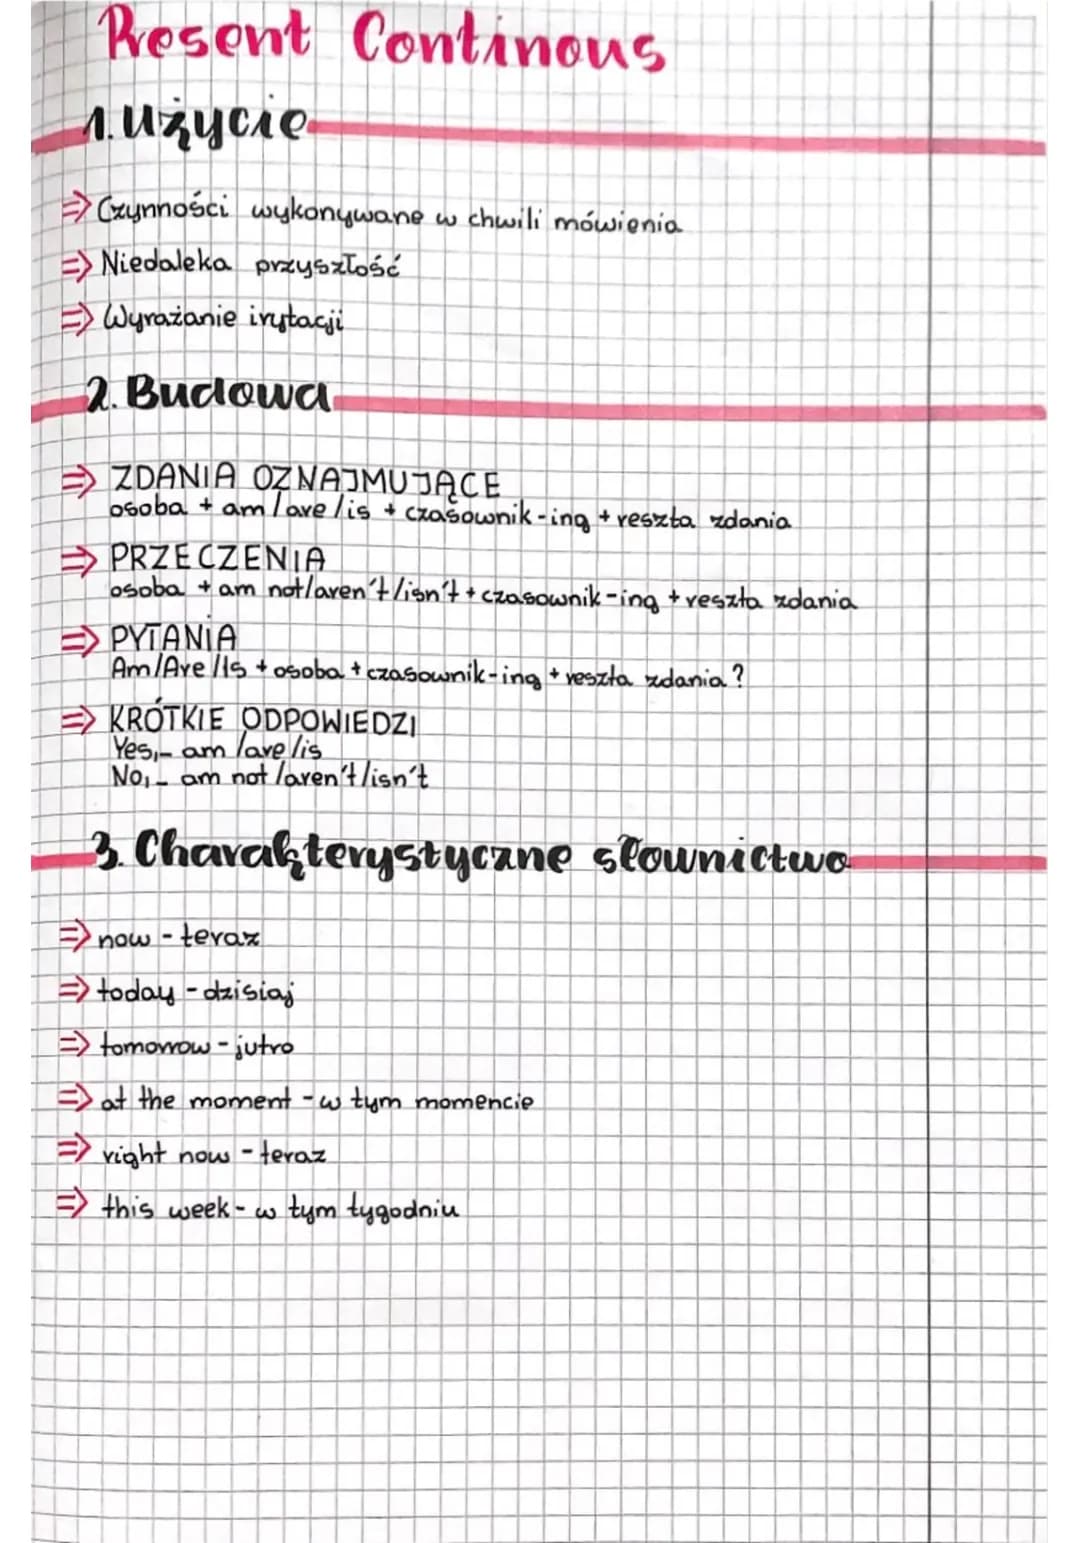 Present Continous
1. Użycie
⇒ Czynności wykonywane w chwili mówienia
⇒ Niedaleka przyszłość
⇒ Wyrażanie irytacji
2. Budowa
⇒ ZDANIA OZNAJMUJĄCE
osoba + am/are/is + czasownik-ing + reszta zdania
⇒ PRZECZENIA
osoba + am not/aren't/isn't + czasownik-ing + reszta zdania
⇒ PYTANIA
Am/Are/Is + osoba + czasownik-ing + reszta zdania?
⇒ KRÓTKIE ODPOWIEDZI
Yes, _ am/are/is
No, _ am not/aren't/isn't
3. Charakterystyczne słownictwo
⇒ now - teraz
⇒ today - dzisiaj
⇒ tomorrow - jutro
⇒ at the moment - w tym momencie
⇒ right now - teraz
⇒ this week - w tym tygodniu